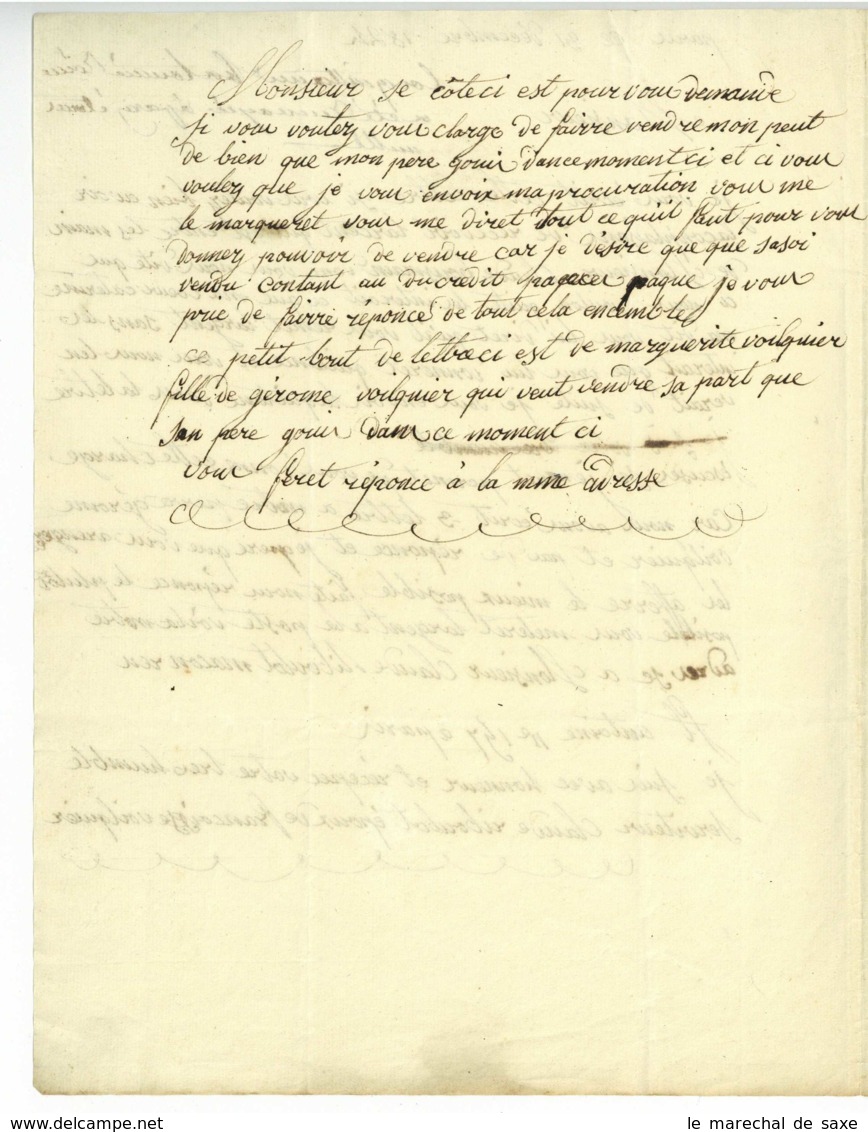 Monsieur se côteci est pour vous demandé
si vous voulez vous clarge de fairre vendre mon peut
de bien que mon pere gouir dance moment ci et ci vous
voulez que je vous envoix ma procuration vous me
le marqueret vous me diret tout ce qu'il faut pour vous
donnez pouvoir de vendre car je désire que que sa soi
vendu contant au du credit paque je vous
prie de fairre réponce de tout cela encemble
ce petit bout de lettre ci est de marguerite voilquier
fille de gérome voilquier qui veut vendre sa part que
son pere gouir dans ce moment ci
vous feret réponce à la mme adresse
le marechal de saxe